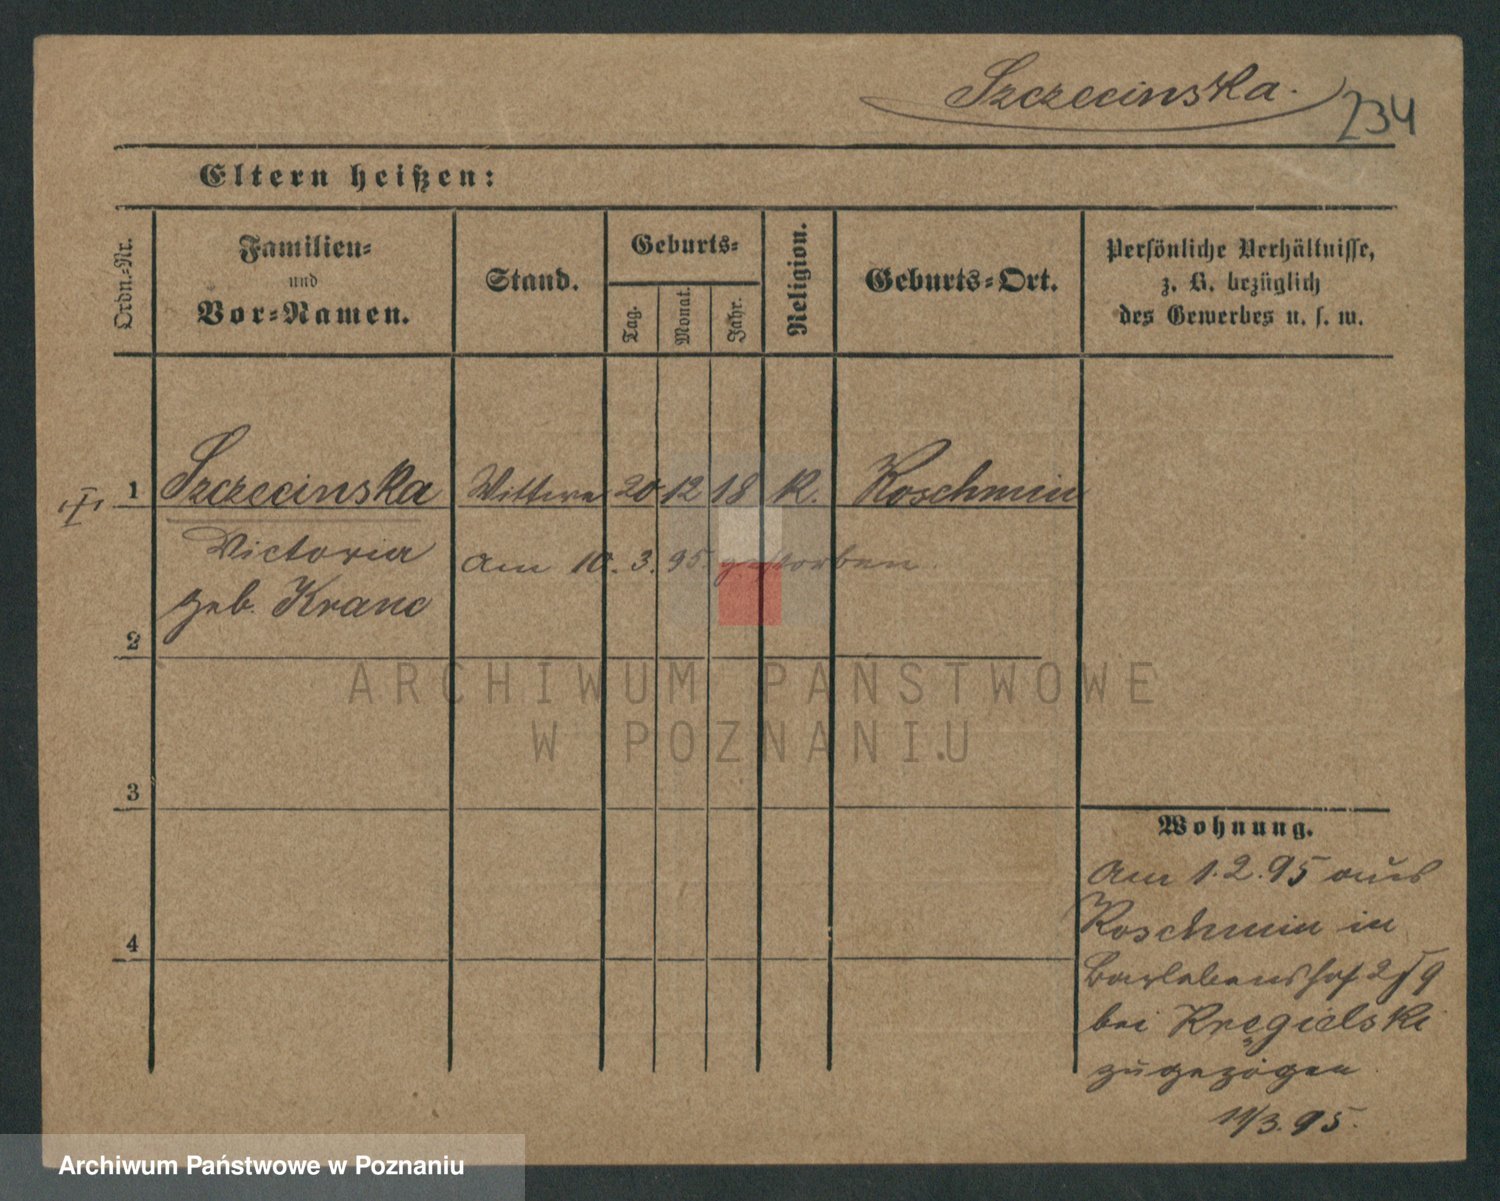 Szczecinska.
234
Eltern heißen:
Ordn.-Nr.
Familien-
und
Vor-Namen.
Stand.
Geburts-
Tag.
Monat.
Jahr.
Religion.
Geburts-Ort.
Persönliche Verhältnisse,
z. B. bezüglich
des Gewerbes u. s. w.
1 Szczecinska Wittwe 20 12 18 K. Koschmin
Victoria am 10. 3. 95. gestorben.
geb. Kranc
2
ARCHIWUM PAŃSTWOWE
W POZNANIU
3
Wohnung.
Am 1.2.95 aus
Koschmin in
Barlebenshof
bei Kręgielski
zugezogen
11/3.95.
4
Archiwum Państwowe w Poznaniu